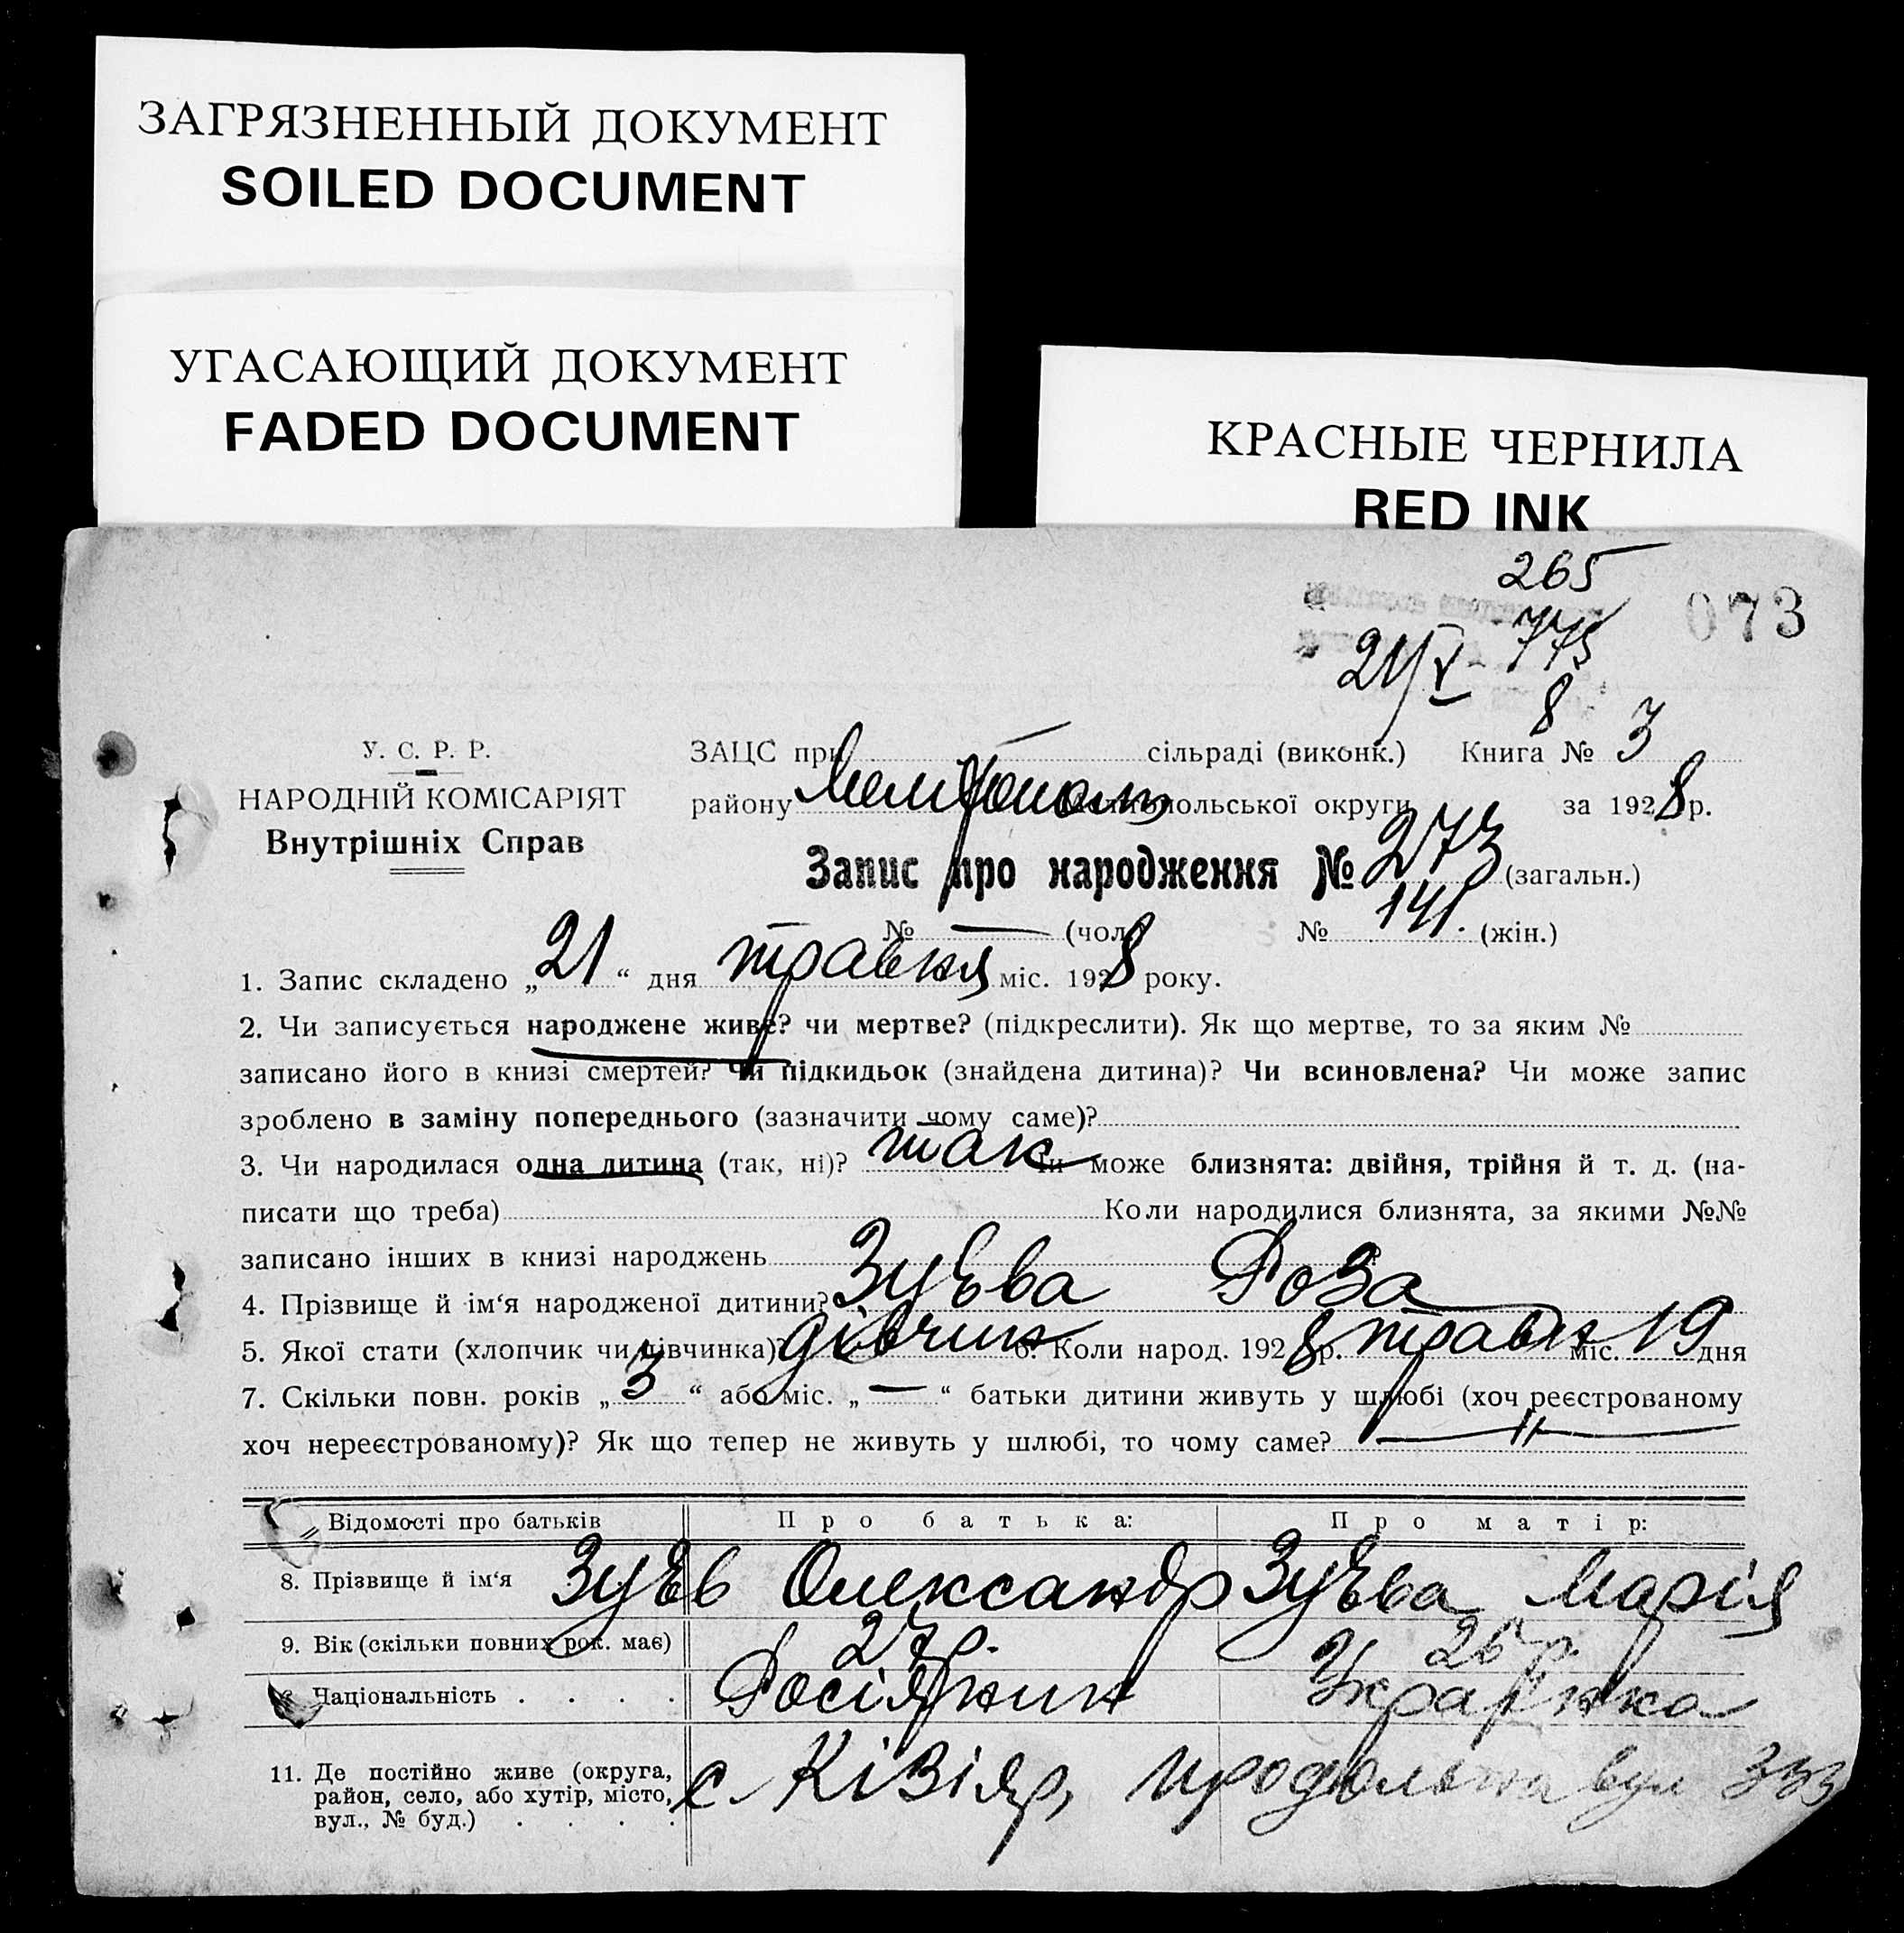 ЗАГРЯЗНЕННЫЙ ДОКУМЕНТ
SOILED DOCUMENT
УГАСАЮЩИЙ ДОКУМЕНТ
FADED DOCUMENT
КРАСНЫЕ ЧЕРНИЛА
RED INK
265
073
21/V - 775
8
У. С. Р. Р.
НАРОДНІЙ КОМІСАРІЯТ
Внутрішніх Справ
ЗАЦС при — сільраді (виконк.) Книга № 3
району Мелітополь Мелітопольської округи за 1928 р.
Запис про народження № 273 (загальн.)
№ — (чол.) № 141. (жін.)
1. Запис складено „21“ дня травня міс. 1928 року.
2. Чи записується народжене живе? чи мертве? (підкреслити). Як що мертве, то за яким №
записано його в книзі смертей? Чи підкидьок (знайдена дитина)? Чи всиновлена? Чи може запис
зроблено в заміну попереднього (зазначити чому саме)?
3. Чи народилася одна дитина (так, ні)? так Чи може близнята: двійня, трійня й т. д. (на-
писати що треба) Коли народилися близнята, за якими №№
записано інших в книзі народжень
4. Прізвище й ім‘я народженої дитини? Зуєва Роза
5. Якої стати (хлопчик чи дівчинка)? дівчин 6. Коли народ. 1928 р. травня міс. 19 дня
7. Скільки повн. років „3“ або міс. „—“ батьки дитини живуть у шлюбі (хоч реєстрованому
хоч нереєстрованому)? Як що тепер не живуть у шлюбі, то чому саме? —"—
Відомості про батьків Про батька: Про матір:
8. Прізвище й ім‘я Зуєв Олександр Зуєва Марія
9. Вік (скільки повних рок. має) 27 р. 26 р.
Національність . . . . Росіянин Українка
11. Де постійно живе (округа,
район, село, або хутір, місто,
вул., № буд.) . . . .
с. Кізіяр, продольна вул 333